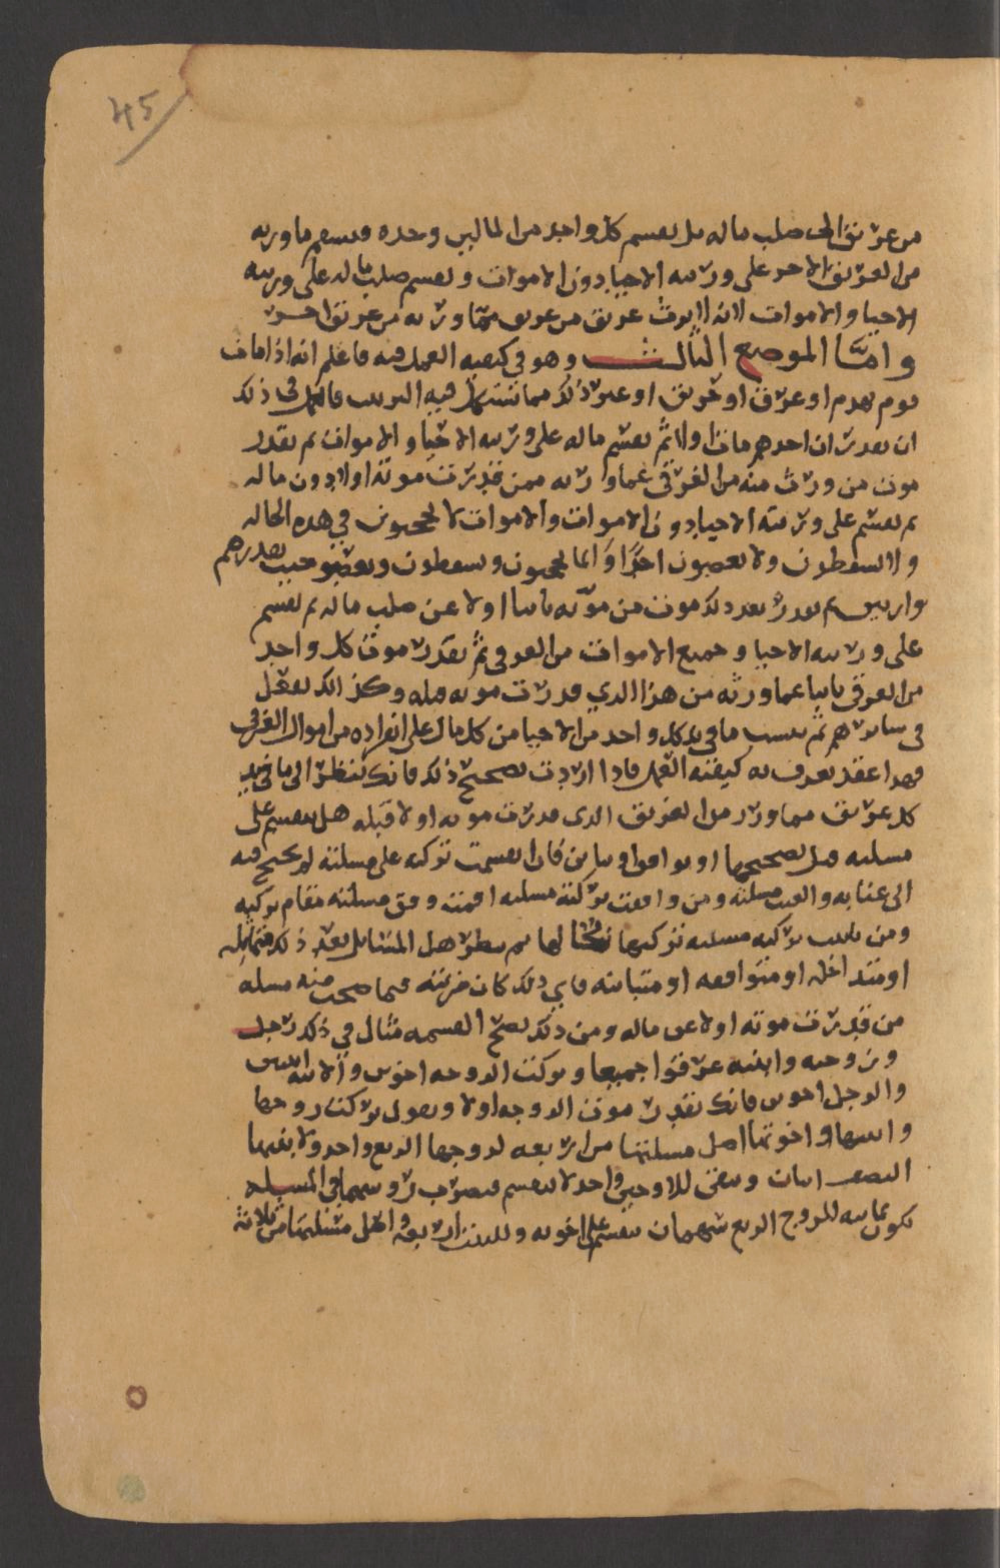 45
من غريق الى صلب ماله بل يقسم كل واحد من المالين وحده فيقسم ما ورثه
من الغريق الاخر على ورثته الاحيا دون الاموات ويقسم صلب ماله على ورثته
الاحيا والاموات لانه لا يرث غريق من غريق مما ورثه من غريق اخر
واما الموضع الثالث وهو في كيفيه العمل فيه فاعلم انه اذا مات
قوم بهدم او غرق او حريق او غير ذلك مما يشكل فيه الترتيب فالعمل في ذلك
ان تقدر ان احدهم مات اولا ثم تقسم ماله على ورثته الاحيا والاموات ثم تقدر
موت من ورث منه من الغرقى عما ورثه ممن قدرت موته اولا دون ماله
ثم تقسم على ورثته الاحيا دون الاموات والاموات لا يحجبون في هذه الحاله
ولا يسقطون ولا يعصبون احدا وانما يحجبون ويسقطون ويعصبون حيث تقدرهم
وارثين ثم تقدر بعد ذلك موت من موته ثانيا اولا عن صلب ماله ثم تقسم
على ورثته الاحيا وجميع الاموات من الغرقى ثم تقدر موت كل واحد
من الغرقى ثانيا عما ورثه من هذا الذي قدرت موته قبله وكذلك تفعل
في سائرهم ثم تنسب ما في يد كل واحد من الاحيا من كل مال على انفراده من اموال الغرقى
فهذا عقد تعرف به كيفيه العمل فاذا اردت تصحيح ذلك فانك تنظر الى ما في يد
كل غريق مما ورث من الغريق الذي قدرت موته اولا قبله هل ينقسم على
مسلته قبل تصحيحها او يوافق او يباين فان انقسمت تركته على مسلته لم تحتج فيه
الى عنايه والغيت مسلته ومن وافقت تركته مسلته اقمت وفق مسلته مقام تركته
ومن باينت تركته مسلته تركتها بحالها ثم تنظر هل المسائل بعد ذلك متماثله
او متداخله او متوافقه او متباينه فاي ذلك كان ضربته فيما صحت منه مسله
من قدرت موته اولا عن ماله ومن ذلك تصح القسمه مثال في ذلك رجل
وزوجه وابنه غرقوا جميعا وتركت الزوجه اخوين والابنه ابنين
والرجل اخوين فانك تقدر موت الزوجه اولا وتقول تركت زوجها
وابنتها واخوتها اصل مسلتها من اربعه لزوجها الربع واحد ولابنتها
النصف اثنان وبقى للاخوين واحد لا ينقسم فتضرب رؤسهما في المسله
تكون ثمانيه للزوج الربع سهمان تقسم على اخوته وللبنت اربعه واصل مسلتها من ثلاثه